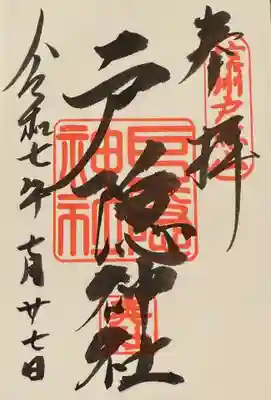 信州戸隠山
奉拝
戸隠神社
戸隠
神社
令和七年 月廿七日